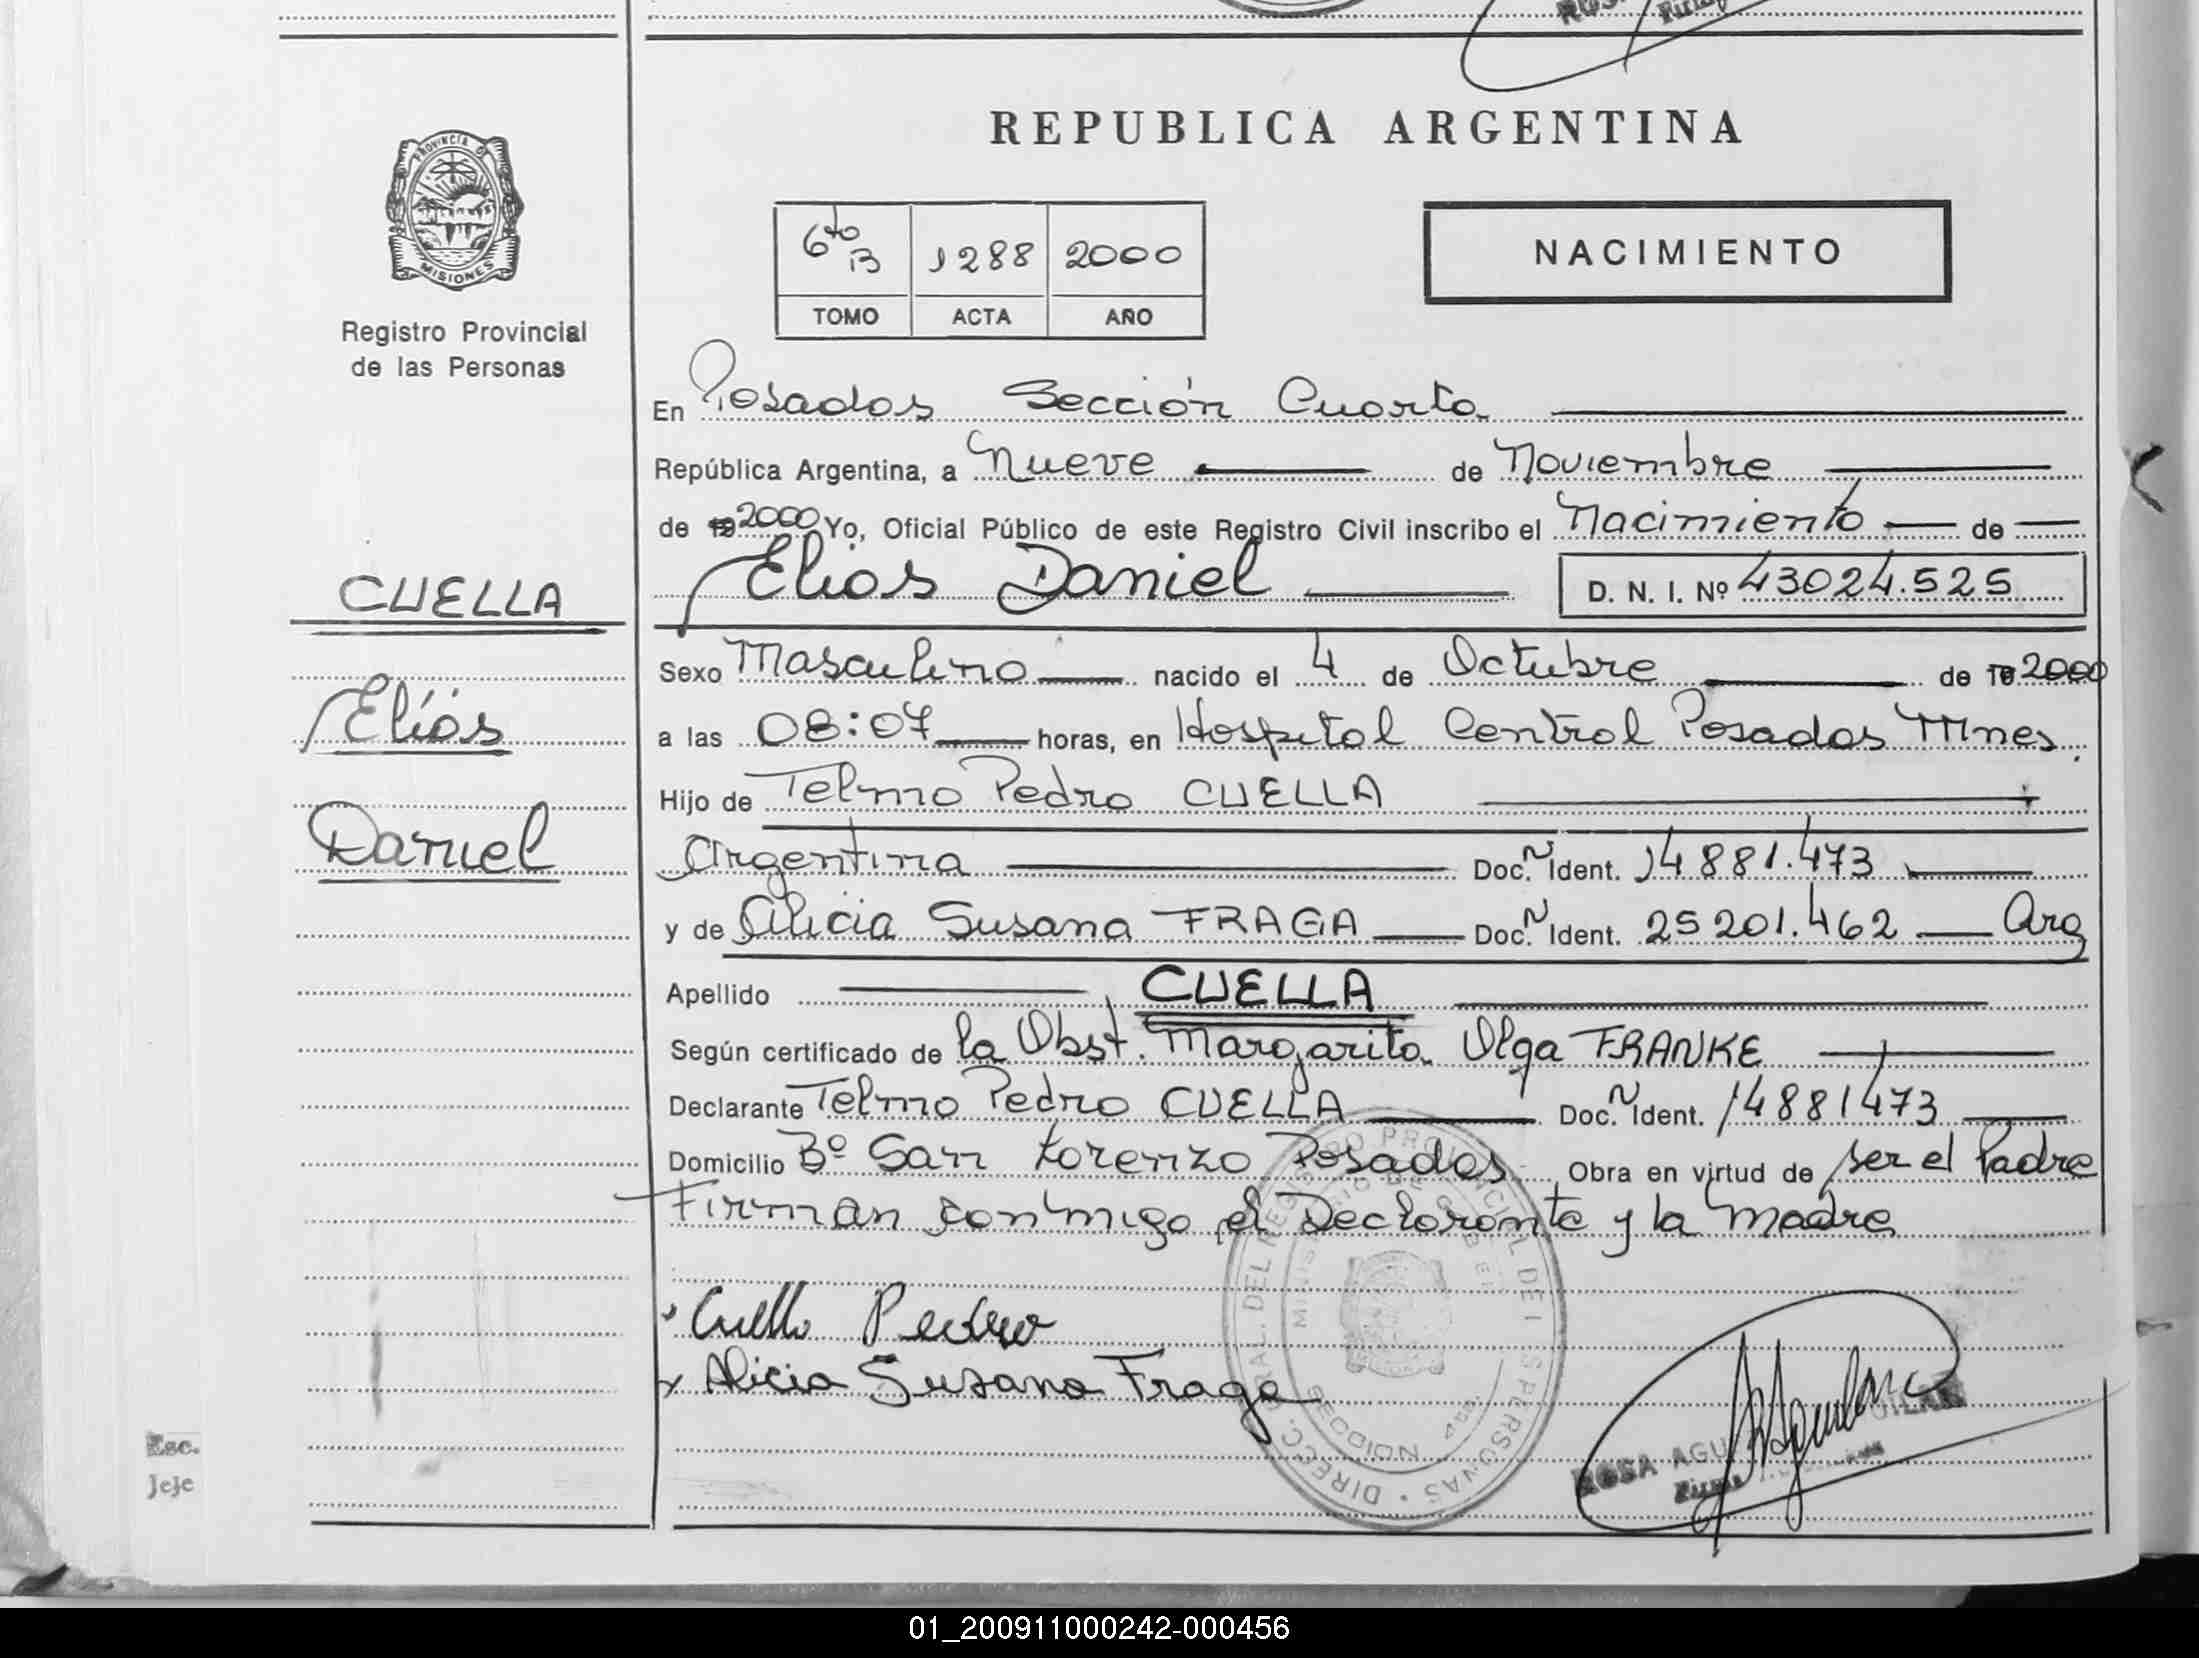 REPUBLICA ARGENTINA
PROVINCIA DE
MISIONES
Registro Provincial
de las Personas
6to B 1288 2000
TOMO ACTA AÑO
NACIMIENTO
En Posadas Sección Cuarta
República Argentina, a Nueve de Noviembre
de 19 2000 Yo, Oficial Público de este Registro Civil inscribo el Nacimiento de
Elias Daniel D. N. I. Nº 43024.525
CUELLA
Elías
Daniel
Sexo Masculino nacido el 4 de Octubre de 19 2000
a las 08:07 horas, en Hospital Central Posadas Mnes.
Hijo de Telmo Pedro CUELLA
Argentina Doc. N Ident. 14881.473
y de Alicia Susana FRAGA Doc. N Ident. 25201.462 Arg
Apellido CUELLA
Según certificado de la Obst. Margarita Olga FRANKE
Declarante Telmo Pedro CUELLA Doc. N Ident. 14881473
Domicilio Bº San Lorenzo Posadas Obra en virtud de ser el Padre
Firman conmigo el Declarante y la Madre
Cuella Pedro
x Alicia Susana Fraga
ROSA AGUILAR
Firma
Esc.
Jeje
01_200911000242-000456